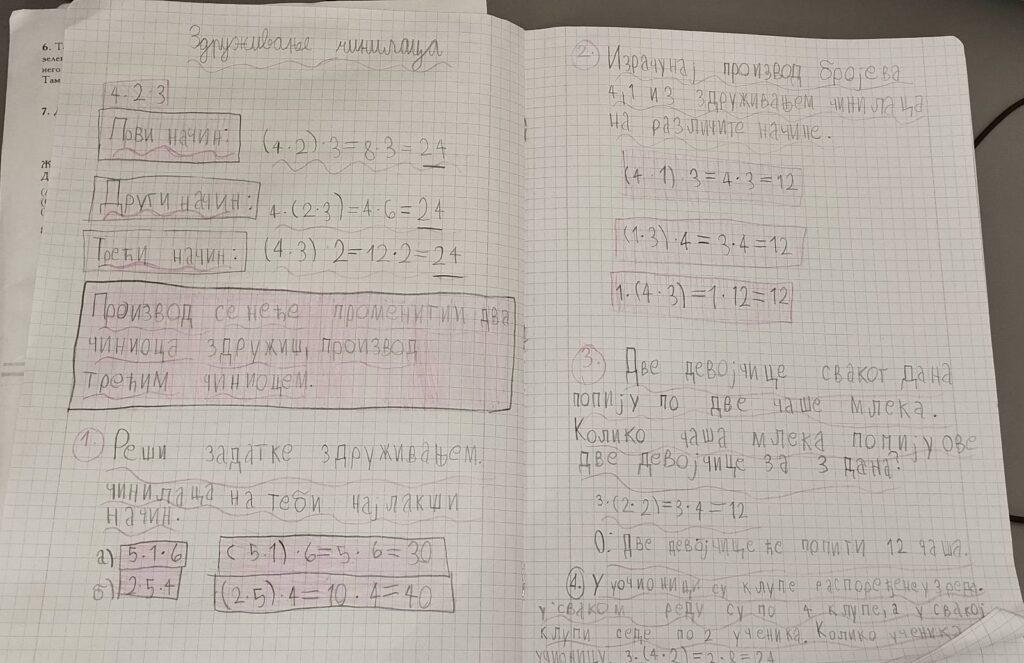 6. Т
зелен
него
Там
7.
Здруживање чинилаца
4·2·3
Први начин:
(4·2)·3=8·3=24
Други начин:
4·(2·3)=4·6=24
Трећи начин:
(4·3) 2=12·2=24
Производ се неће променити два
чиниоца здружиш, производ
трећим чиниоцем.
1. Реши задатке здруживањем.
чинилаца на теби најлакши
начин.
а) 5·1·6 (5·1)·6=5·6=30
б) 2·5·4 (2·5)·4=10·4=40
2. Израчунај производ бројева
4,1 и 3 здруживањем чинилаца
на различите начине.
(4·1)·3=4·3=12
(1·3)·4=3·4=12
1·(4·3)=1·12=12
3. Две девојчице сваког дана
попију по две чаше млека.
Колико чаша млека попију ове
две девојчице за 3 дана?
3·(2·2)=3·4=12
О: Две девојчице ће попити 12 чаша.
4. У учионици су клупе распоређене у 3 реда.
у сваком реду су по 4 клупе, а у свакој
клупи седе по 2 ученика. Колико ученика
учионицу. 3·(4·2)=